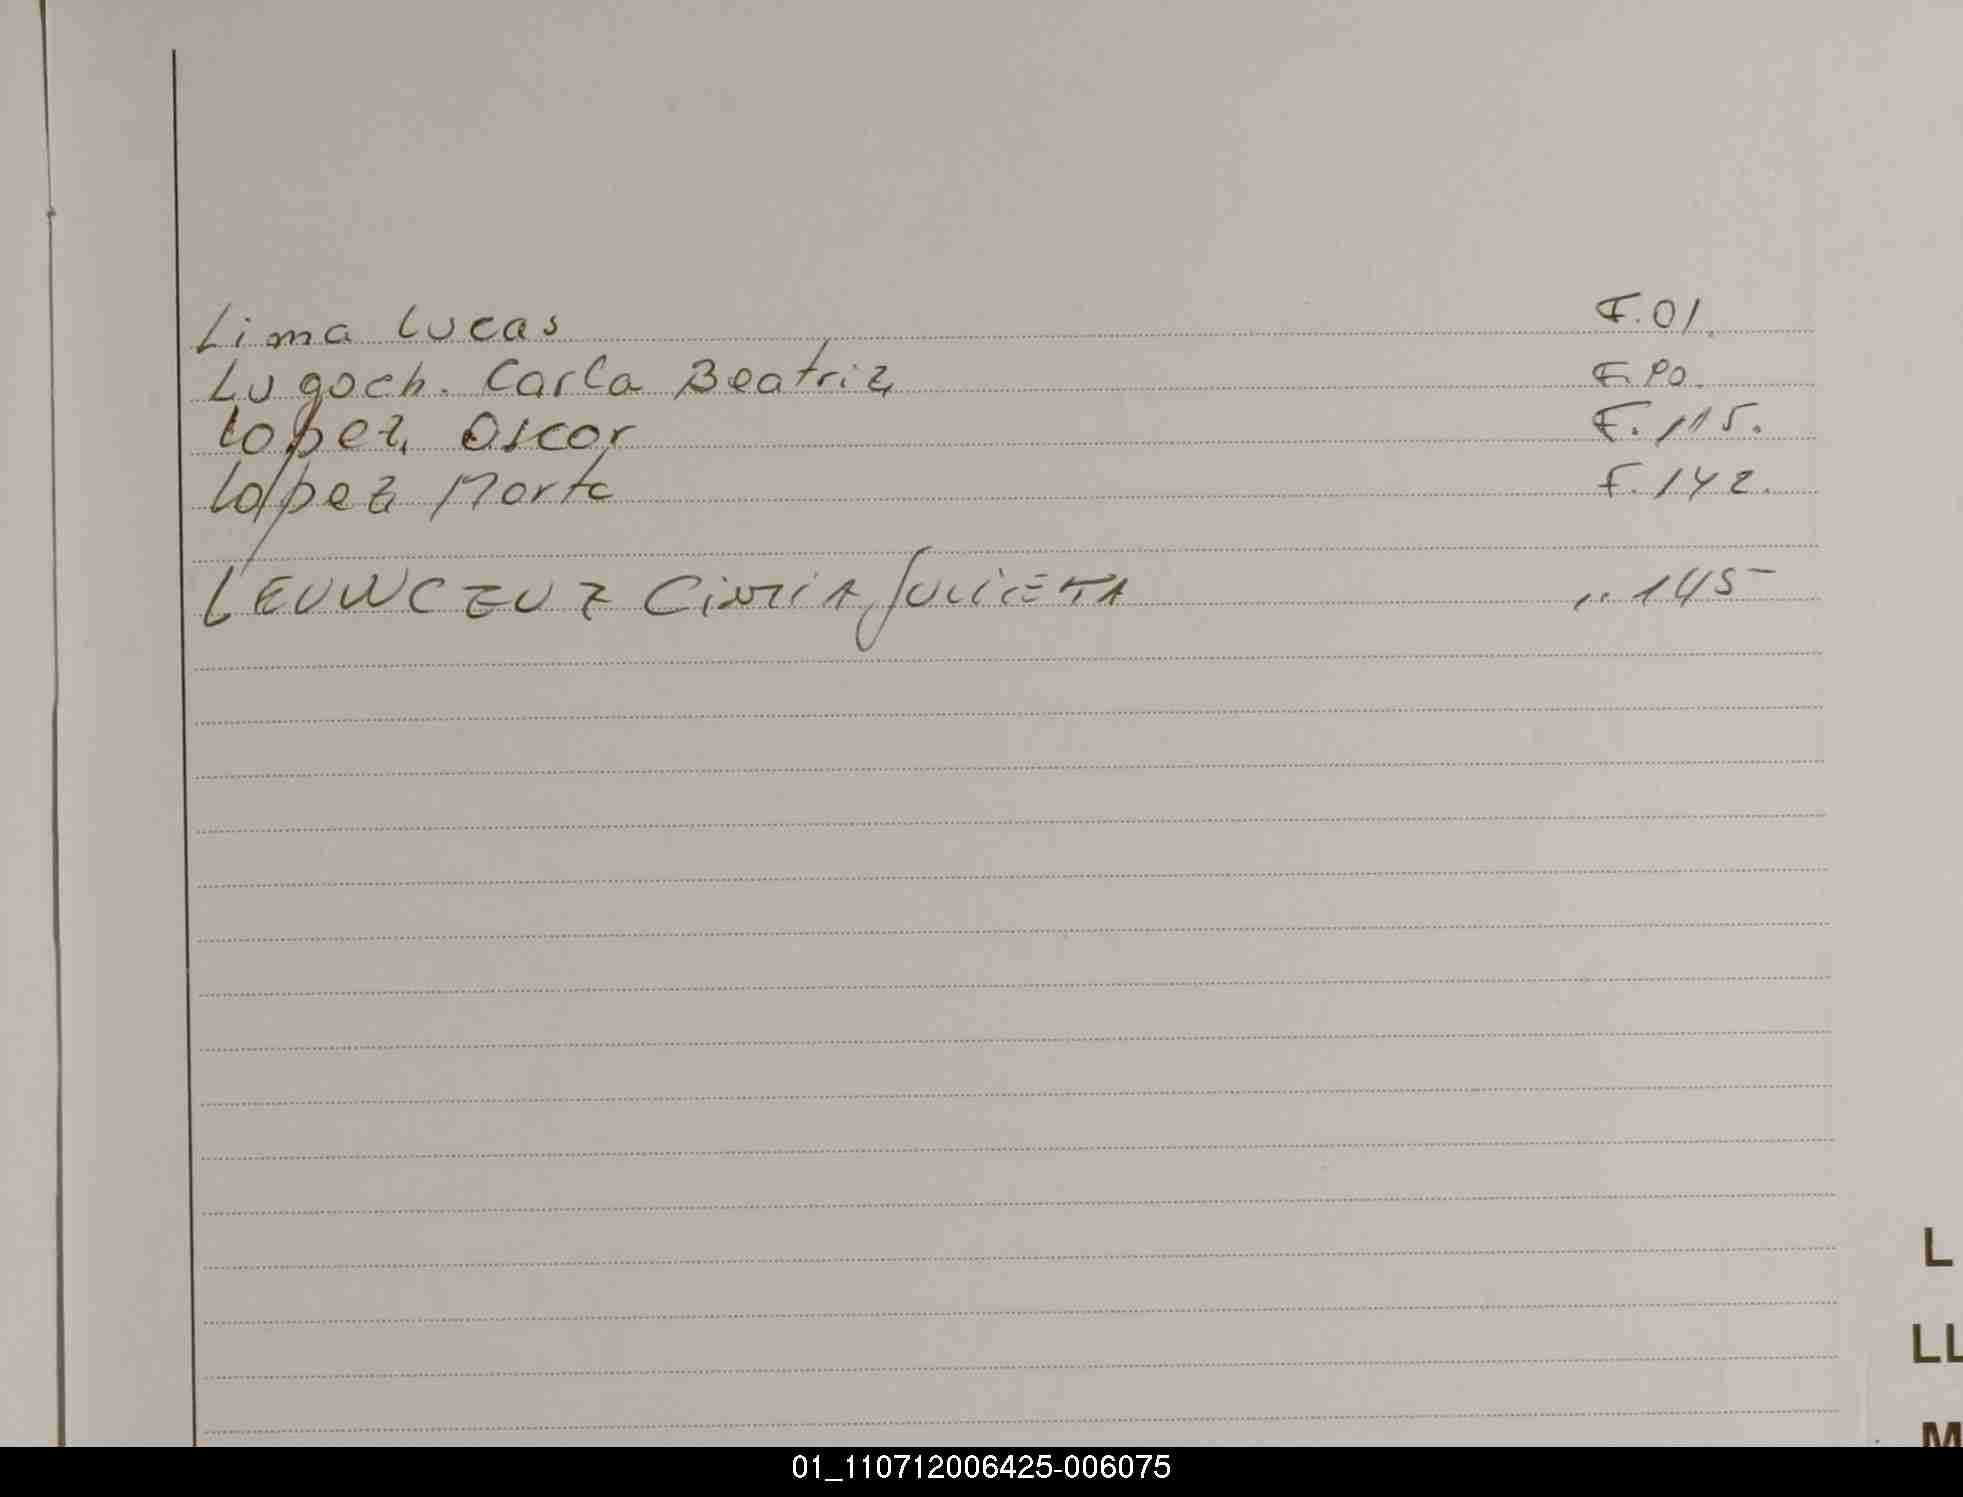 Lima Lucas F.01.
Lugoch. Carla Beatriz F.90.
Lopez, Oscar F.115.
Lopez Marta F.142.
LEUWCZUZ CiNTiA JULiETA ,, 145
L
LL
M
01_110712006425-006075